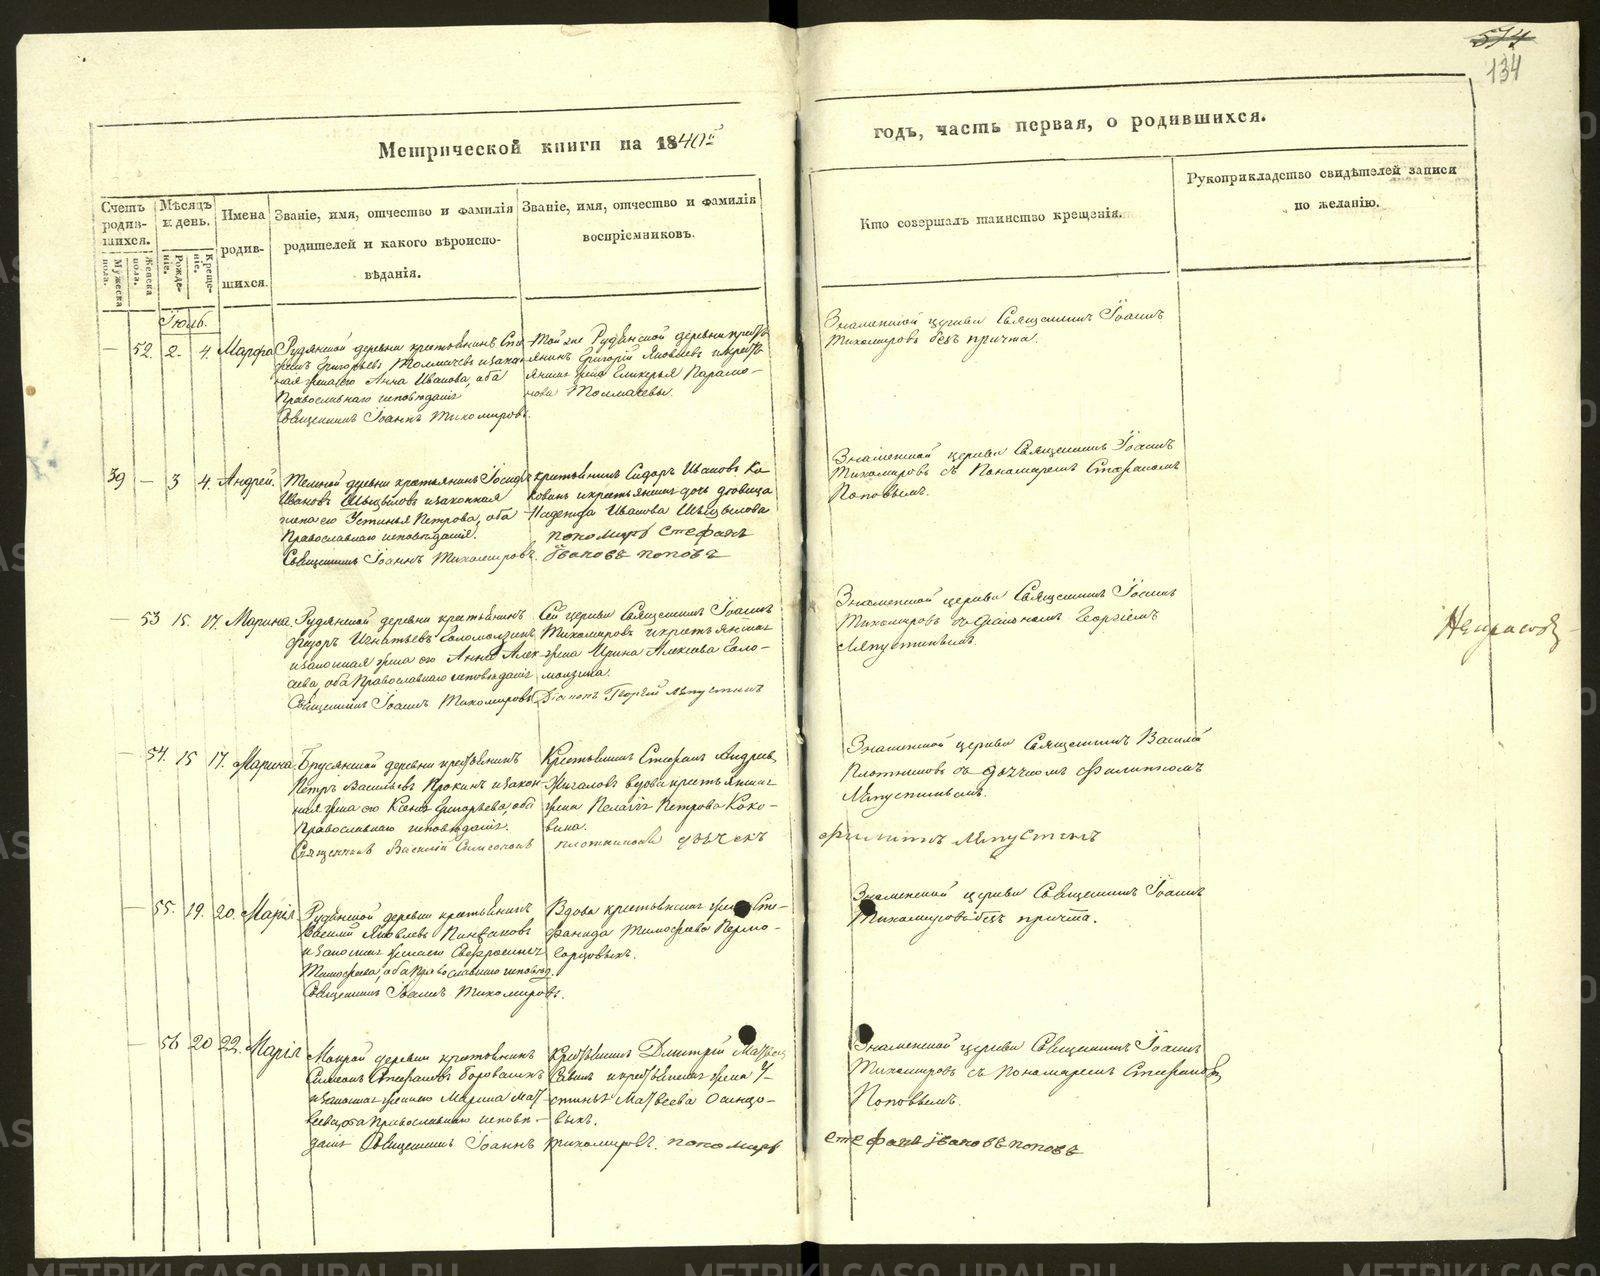 574
134
Метрической книги на 1840й
годъ, часть первая, о родившихся.
Счетъ родив-шихся.
Мужеска пола.
Женска пола.
Мѣсяцъ и день.
Рожде-ніе.
Креще-ніе.
Имена родив-шихся.
Званіе, имя, отчество и фамилія
родителей и какого вѣроиспо-
вѣданія.
Званіе, имя, отчество и фамилія
воспріемниковъ.
Кто совершалъ таинство крещенія.
Рукоприкладство свидѣтелей записи
по желанію.
Іюль.
— 52. 2. 4. Марфа
Рудянской деревни крестьянинъ
Григорьевъ Толмачевъ и закон
ная жена его Анна Иванова, оба
Православнаго исповѣданія
Священникъ Іоаннъ Тихомировъ.
Той же Рудянской деревни кресть
янинъ Григорій Яковлевъ и кресть
янская жена Гликерья Парамо-
нова Толмачевы.
Знаменской церкви Священникъ Іоаннъ
Тихомировъ безъ причта.
39 — 3 4. Андрей.
деревни крестьянинъ Іосифъ
Ивановъ и законная
жена его Устинья Петрова, оба
Православнаго исповѣданія.
Священникъ Іоаннъ Тихомировъ.
Крестьянинъ Сидоръ Ивановъ Ко
ковинъ и крестьянская дочь дѣвица
Надежда Иванова
пономарь Стефанъ
Ивановъ Поповъ
Знаменской церкви Священникъ Іоаннъ
Тихомировъ съ Пономаремъ Стефаномъ
Поповымъ.
— 53 15. 17. Марина.
Рудянской деревни крестьянинъ
Федоръ Игнатьевъ
и законная жена его Анна Алек
сѣева, оба Православнаго исповѣданія
Священникъ Іоаннъ Тихомировъ
Сей церкви Священникъ Іоаннъ
Тихомировъ и крестьянская
жена Ирина Алексѣева Соло-
Діаконъ Георгій Ляпустинъ
Знаменской церкви Священникъ Іоаннъ
Тихомировъ съ Діакономъ Георгіемъ
Ляпустинымъ.
Некрасовъ
— 54. 15 17. Марина.
Брусянской деревни крестьянинъ
Петръ Васильевъ и закон
ная жена его Григорьева, оба
Православнаго исповѣданія.
Священникъ Василій Симеоновъ
Крестьянинъ Стефанъ Андреевъ
вдова крестьянская
жена Пелагія Петрова Коко-
вина.
Плотниковъ дьячекъ
Знаменской церкви Священникъ Василій
Плотниковъ съ дьячкомъ Филиппомъ
Ляпустинымъ.
Филиппъ Ляпустинъ
— 55. 19. 20. Марія
Рудянской деревни крестьянинъ
Василій Яковлевъ
и законная жена его
Тимофеева, оба Православнаго исповѣд.
Священникъ Іоаннъ Тихомировъ.
Вдова крестьянская жена Сте-
фанида Тимофеева
Знаменской церкви Священникъ Іоаннъ
Тихомировъ безъ причта.
— 56 20 22. Марія
Мокрой деревни крестьянинъ
Симеонъ Стефановъ
и законная жена его Марина Мат
веева, оба Православнаго исповѣ-
данія Священникъ Іоаннъ Тихомировъ. пономарь
Крестьянинъ Дмитрій
и крестьянская жена У-
стинья Матвеева
Знаменской церкви Священникъ Іоаннъ
Тихомировъ съ Пономаремъ Стефаномъ
Поповымъ.
Стефанъ Ивановъ Поповъ
METRIKI.GASO-URAL.RU
METRIKI.GASO-URAL.RU
METRIKI.GASO-URAL.RU